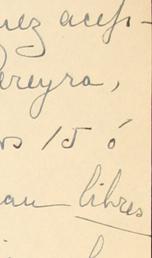 nez acep-
ereyra,
os 15 ó
an libres